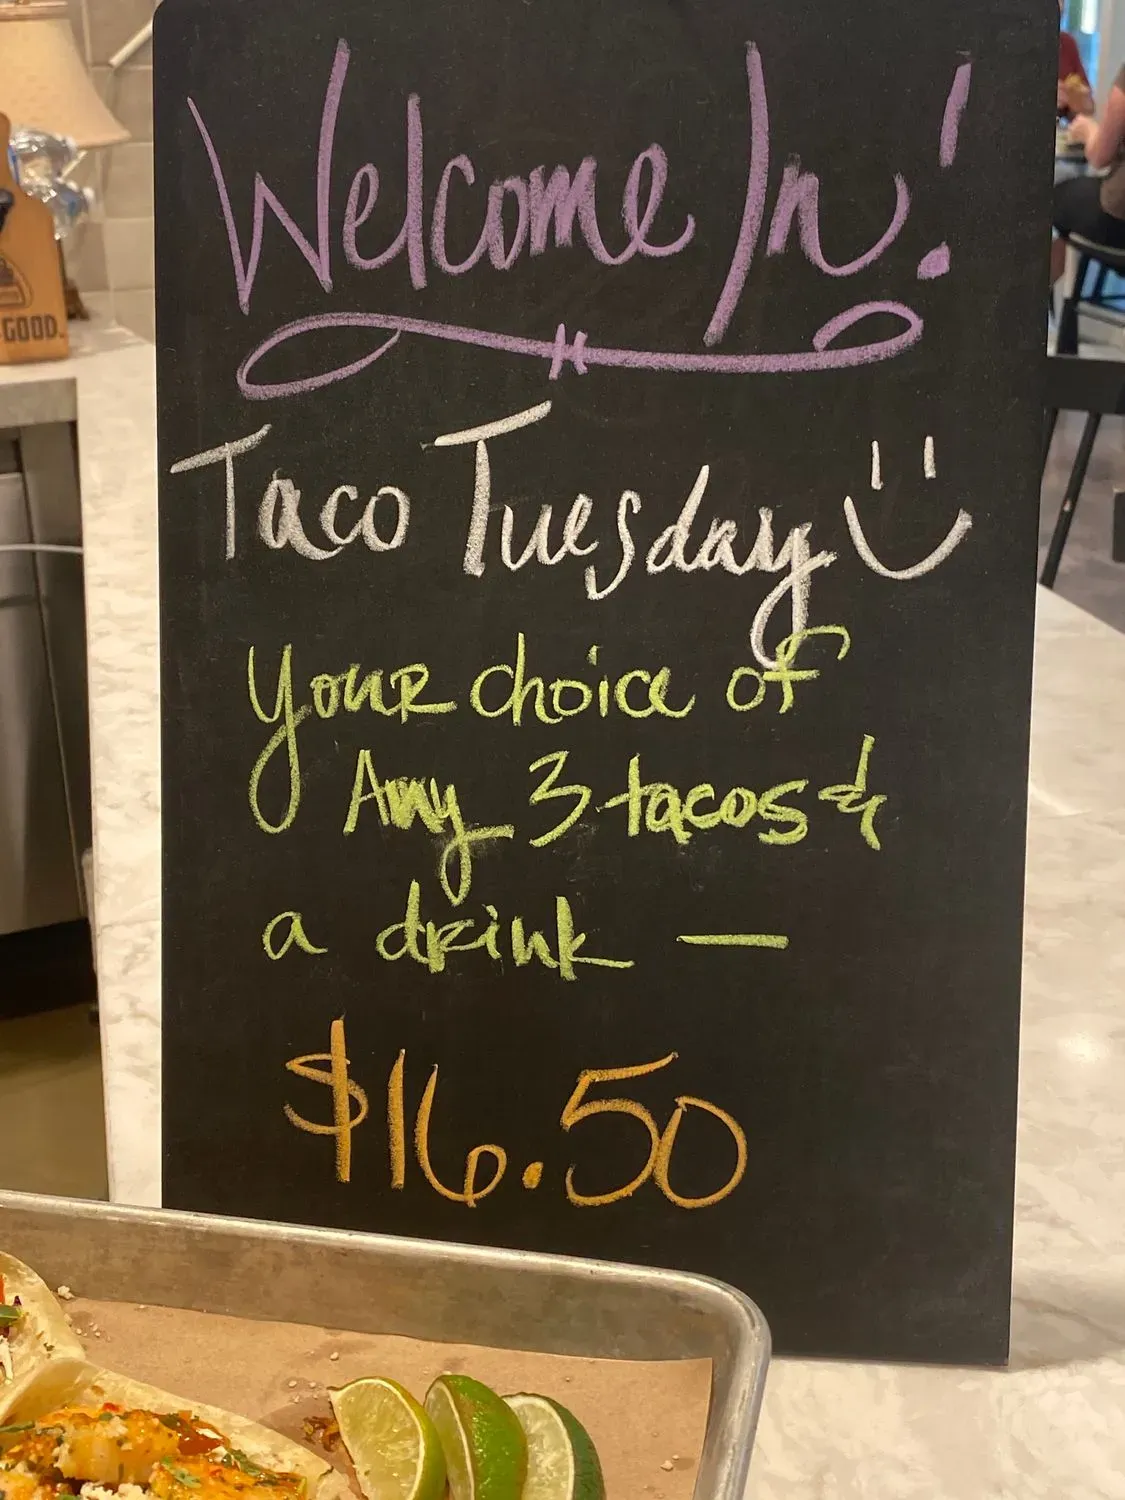 Welcome In!
Taco Tuesday
Your choice of
Any 3 tacos &
a drink —
$16.50
GOOD.